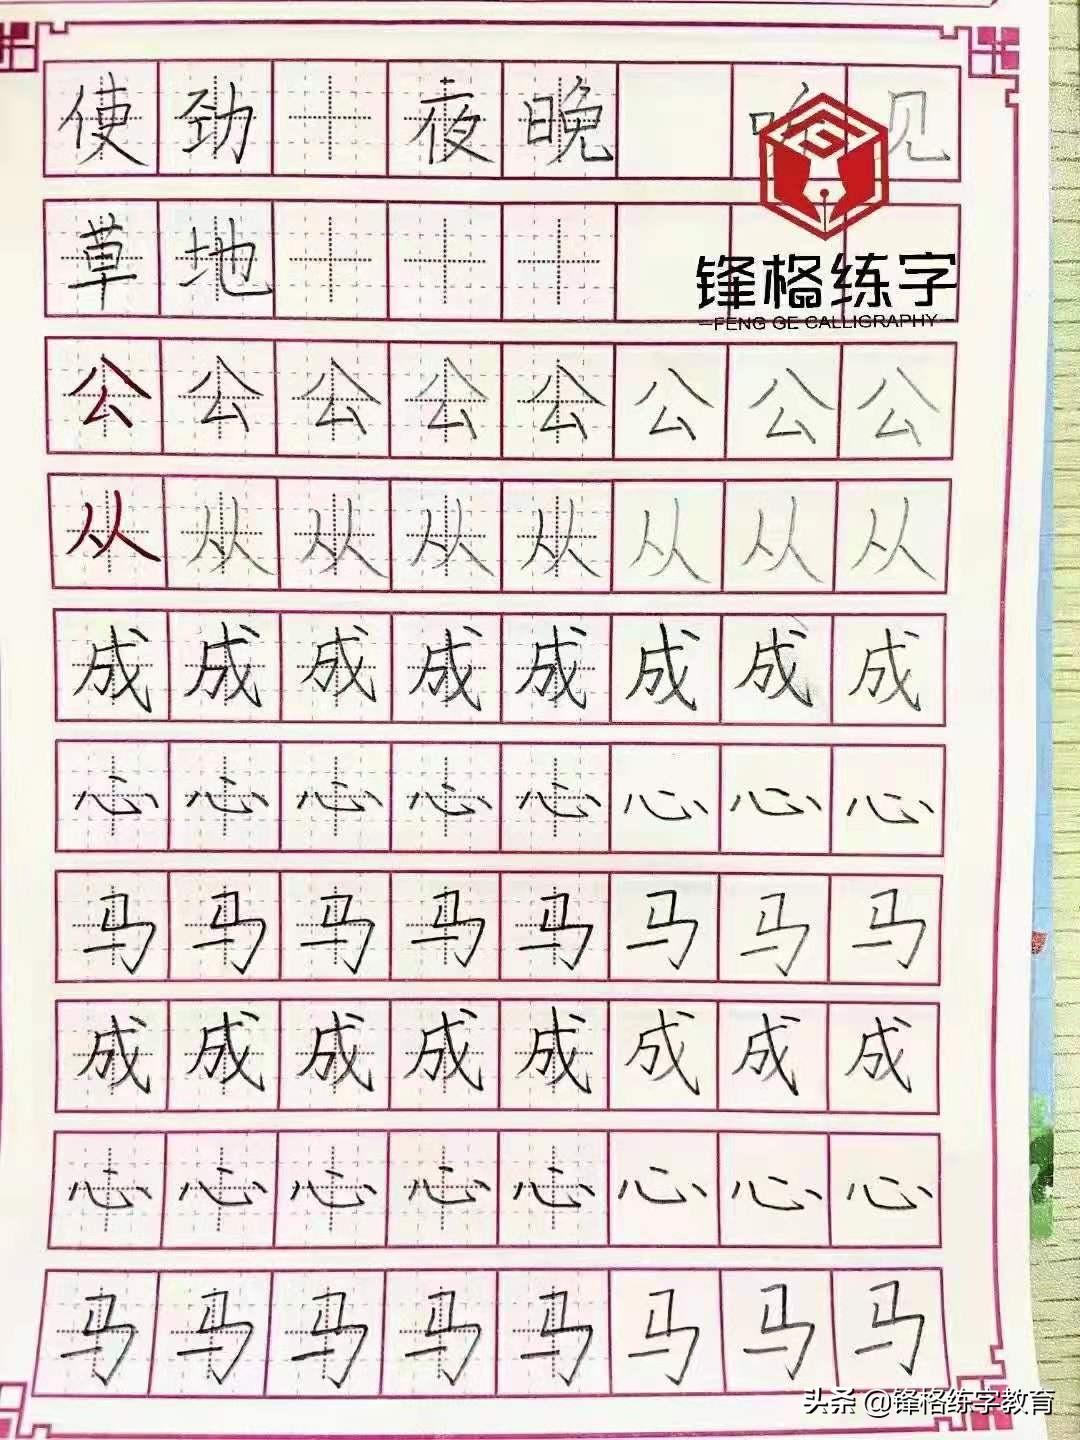 使劲 夜晚 见
草地
锋格练字
FENG GE CALLIGRAPHY
公公公公公公公公
从从从从从从从从
成成成成成成成成
心心心心心心心心
马马马马马马马马
成成成成成成成成
心心心心心心心心
马马马马马马马马
头条 @锋格练字教育